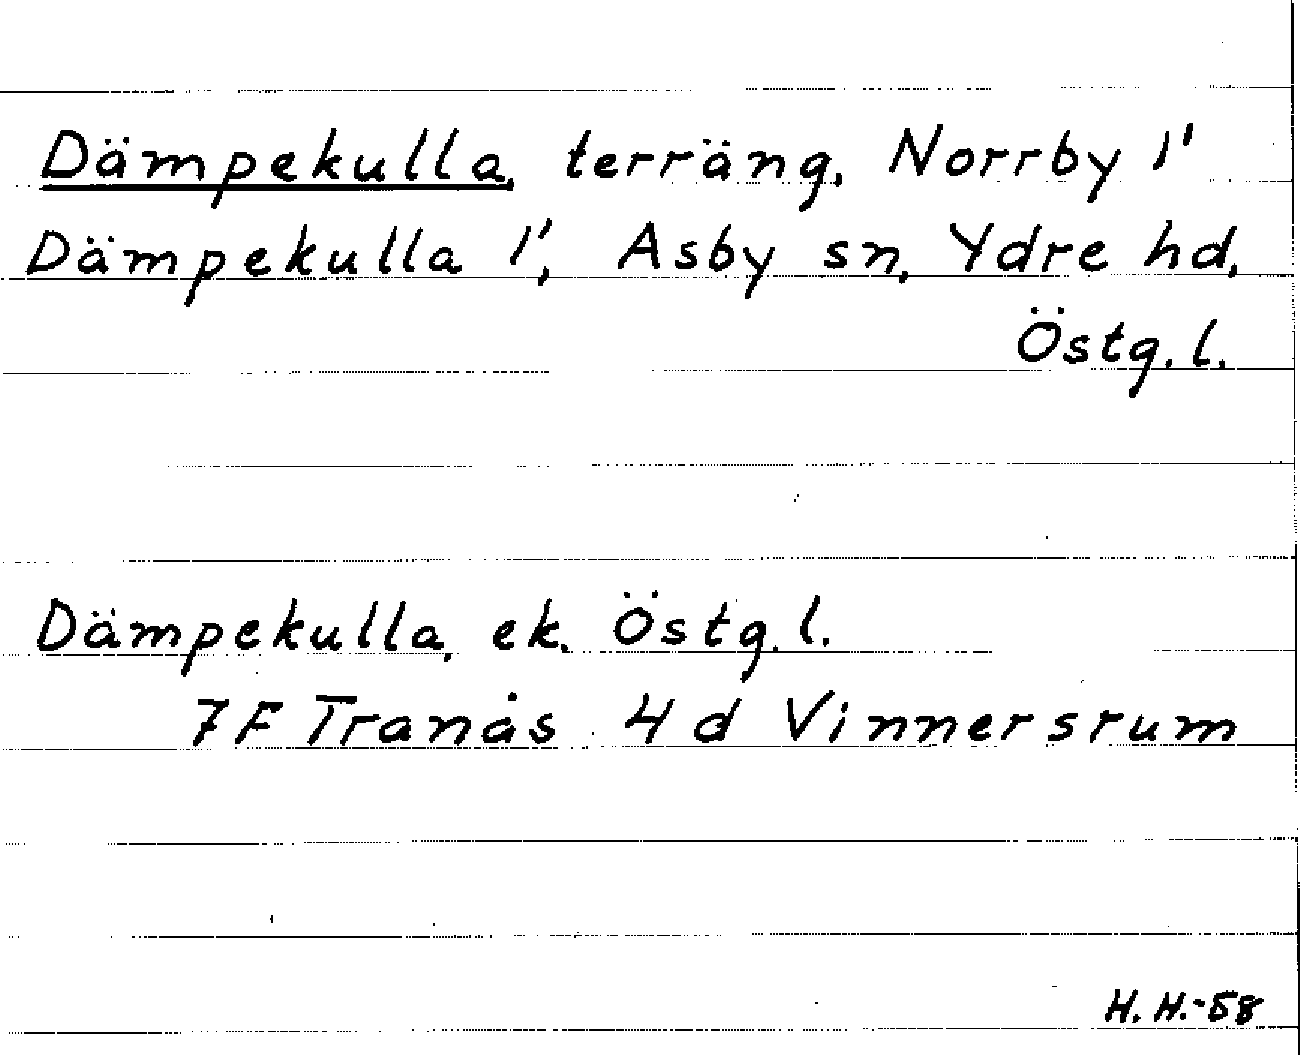 Dämpekulla, terräng, Norrby 1'
Dämpekulla 1', Asby sn, Ydre hd,
Östg. l.
Dämpekulla, ek. Östg. l.
7F Tranås 4d Vinnersrum
H. H.-58